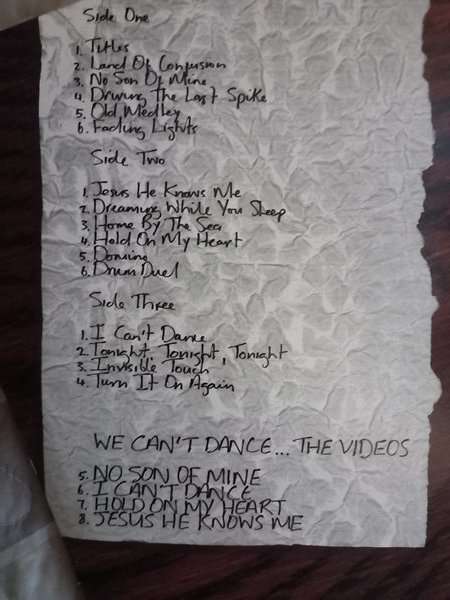 Side One
1. Titles
2. Land Of Confusion
3. No Son Of Mine
4. Driving The Last Spike
5. Old Medley
6. Fading Lights
Side Two
1. Jesus He Knows Me
2. Dreaming While You Sleep
3. Home By The Sea
4. Hold On My Heart
5. Domino
6. Drum Duel
Side Three
1. I Can't Dance
2. Tonight, Tonight, Tonight
3. Invisible Touch
4. Turn It On Again
WE CAN'T DANCE... THE VIDEOS
5. NO SON OF MINE
6. I CAN'T DANCE
7. HOLD ON MY HEART
8. JESUS HE KNOWS ME